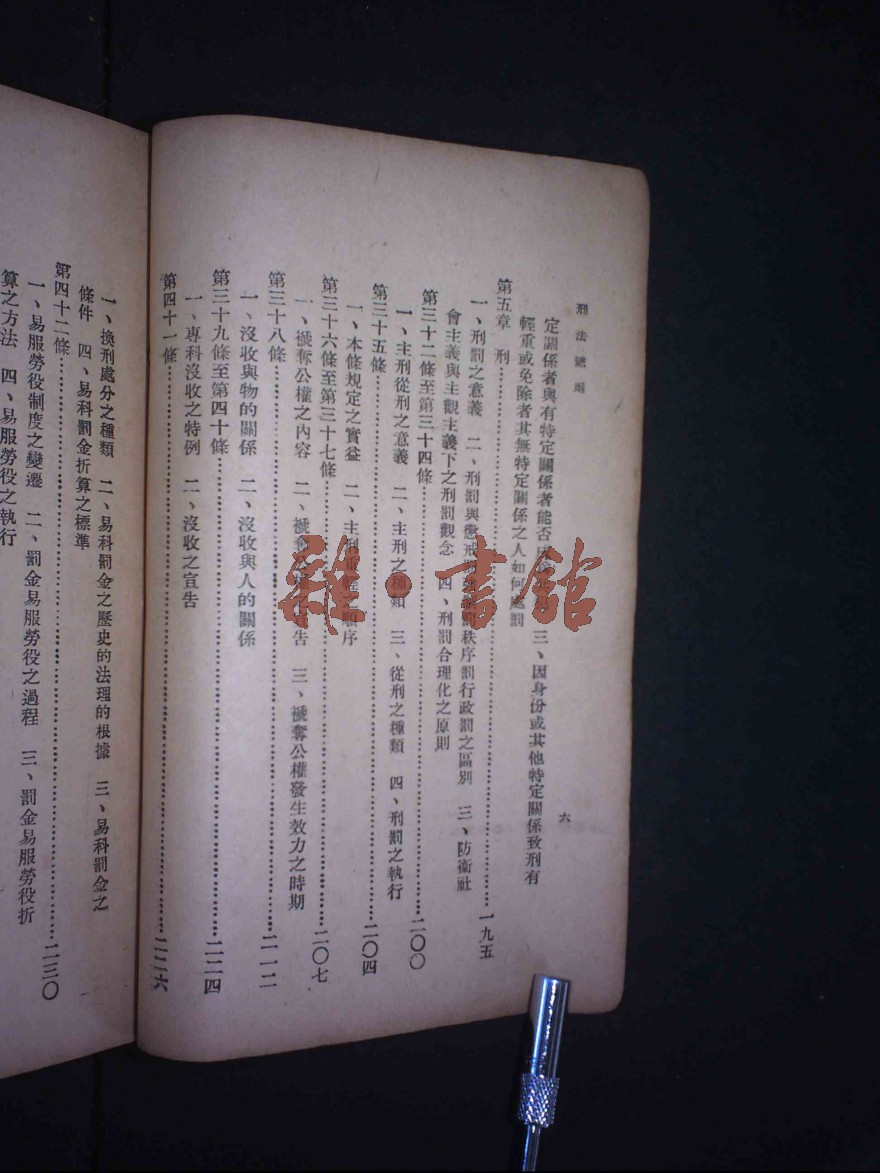 刑法總則
六
定關係者與有特定關係者能否成 三、因身份或其他特定關係致刑有
輕重或免除者其無特定關係之人如何處罰
第五章 刑……一九五
一、刑罰之意義 二、刑罰與懲戒罰 秩序罰行政罰之區別 三、防衛社
會主義與主觀主義下之刑罰觀念 四、刑罰合理化之原則
第三十二條至第三十四條……二〇〇
一、主刑從刑之意義 二、主刑之種類 三、從刑之種類 四、刑罰之執行
第三十五條……二〇四
一、本條規定之實益 二、主刑重輕之順序
第三十六條至第三十七條……二〇七
一、褫奪公權之內容 二、褫奪公權之宣告 三、褫奪公權發生效力之時期
第三十八條……二一二
一、沒收與物的關係 二、沒收與人的關係
第三十九條至第四十條……二二四
一、專科沒收之特例 二、沒收之宣告
第四十一條……二二六
一、換刑處分之種類 二、易科罰金之歷史的法理的根據 三、易科罰金之
條件 四、易科罰金折算之標準
第四十二條……二三〇
一、易服勞役制度之變遷 二、罰金易服勞役之過程 三、罰金易服勞役折
算之方法 四、易服勞役之執行
雜·書館